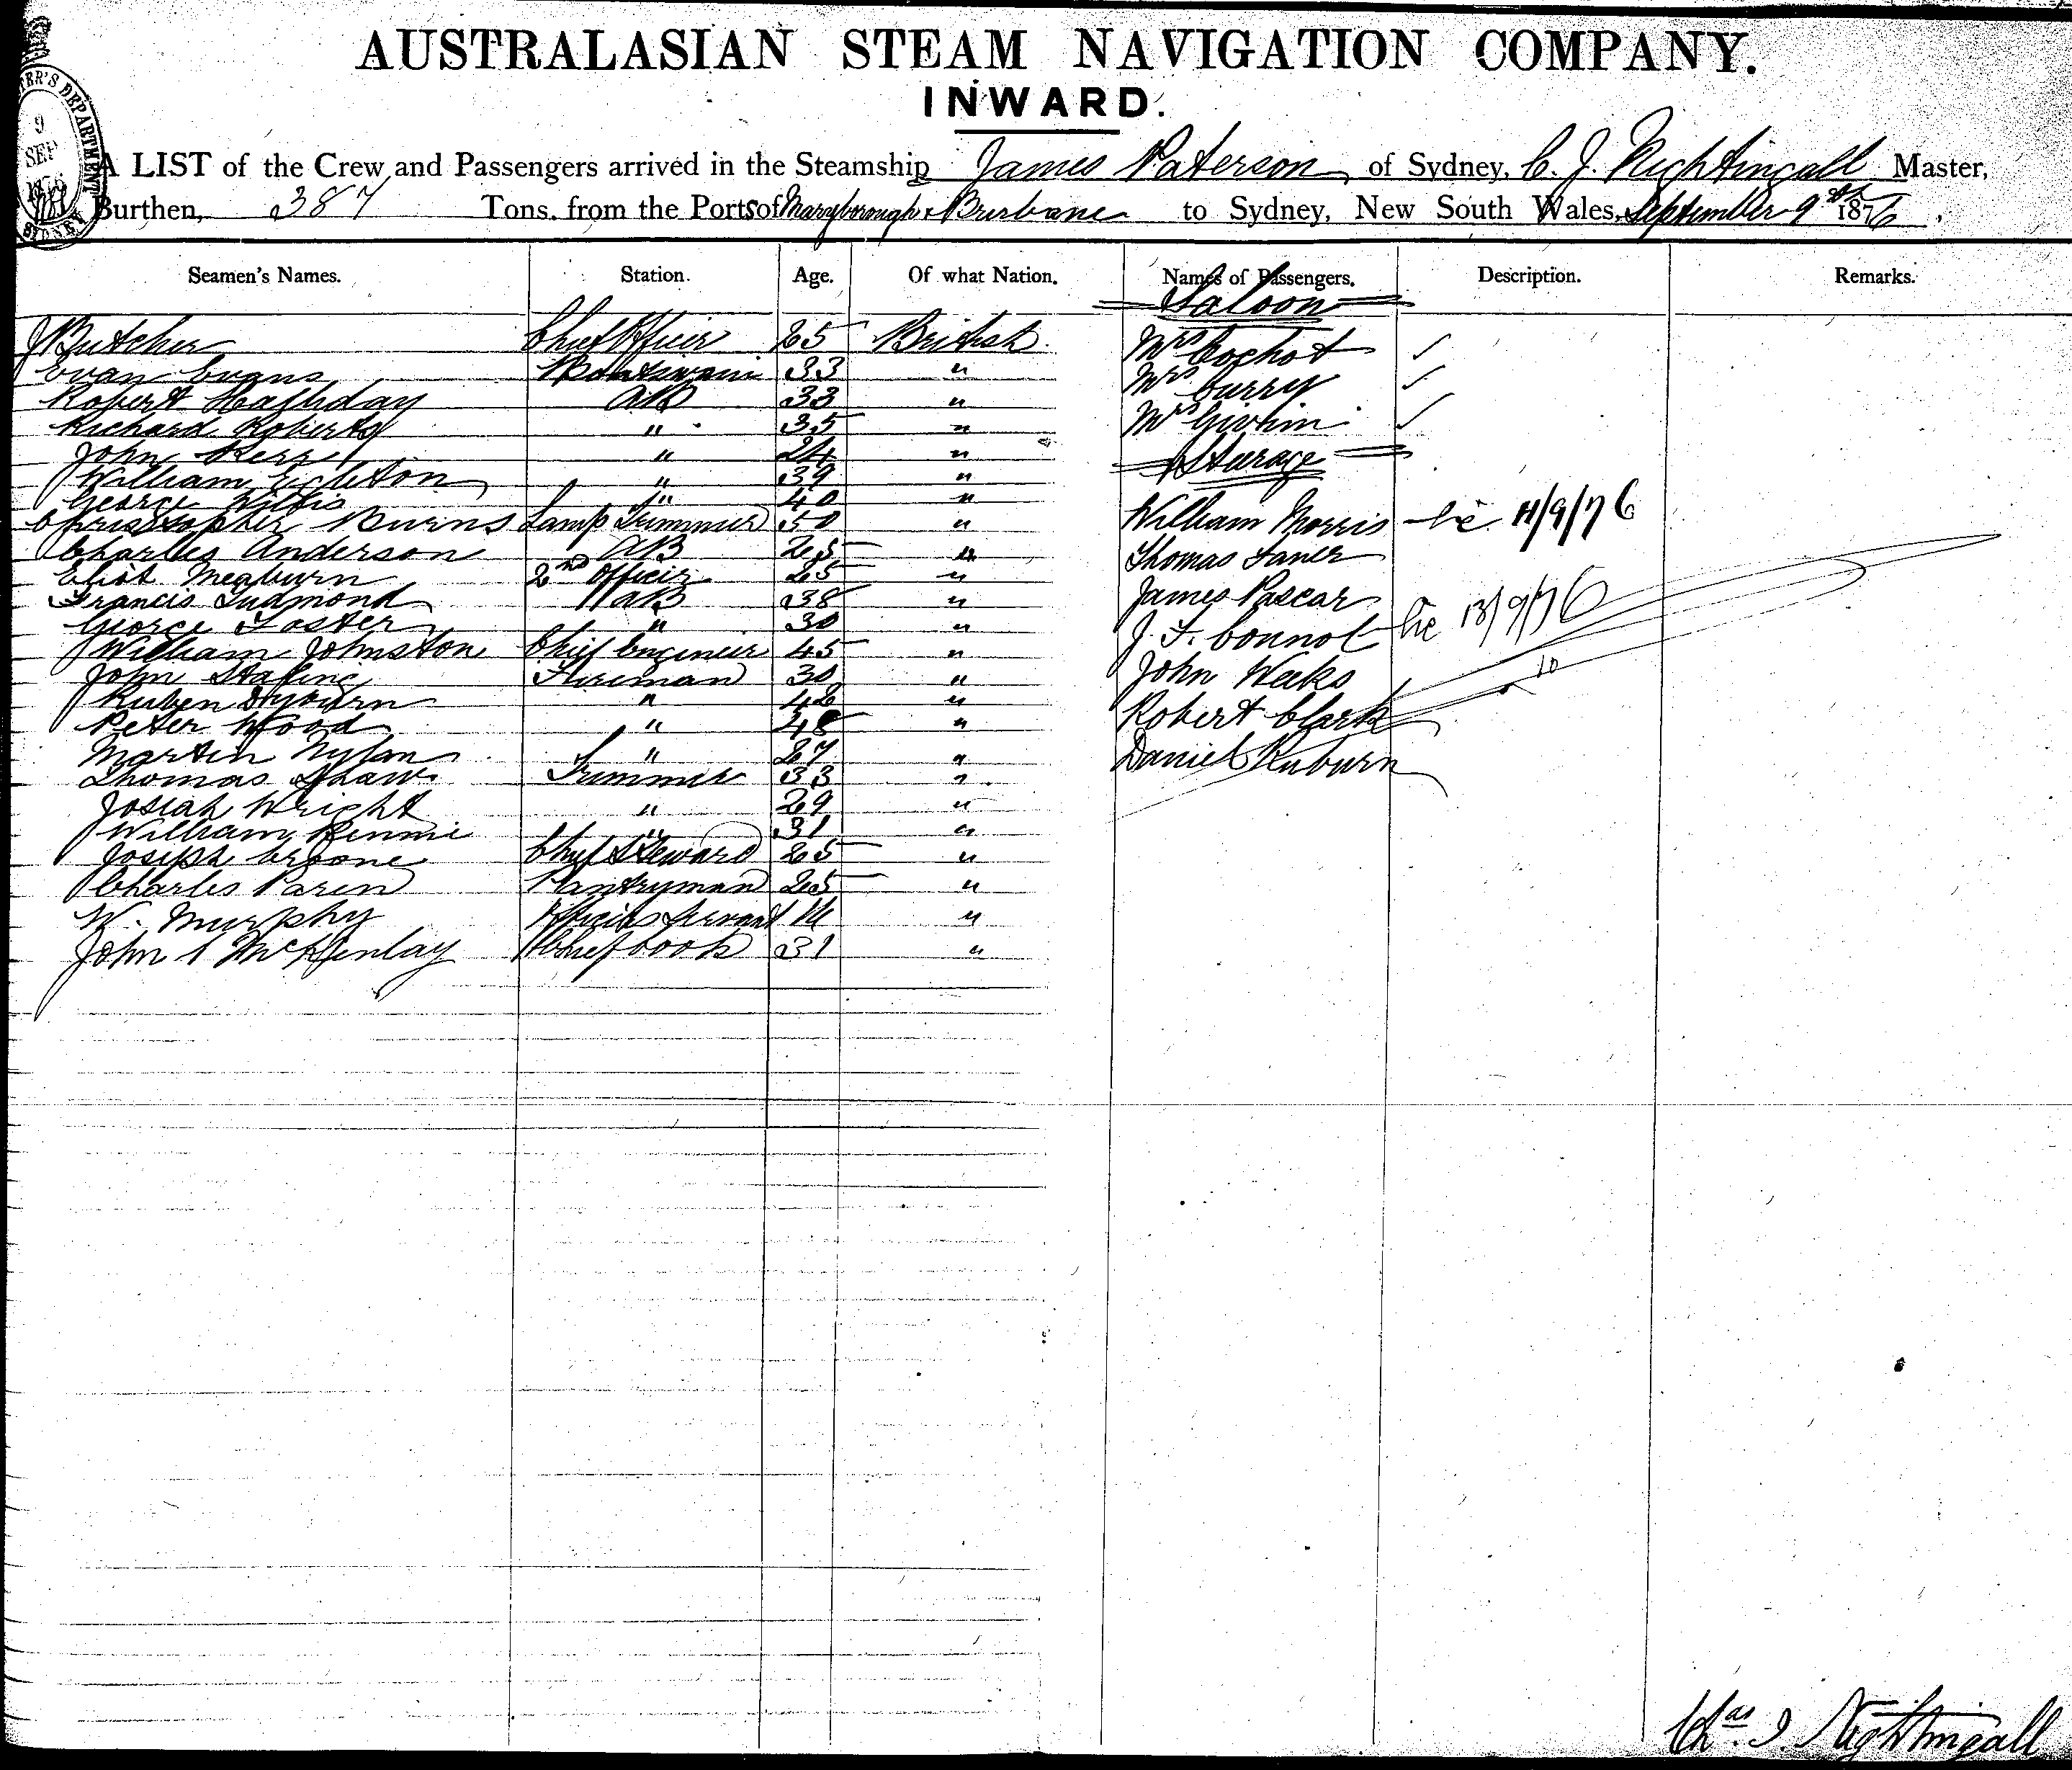 AUSTRALASIAN STEAM NAVIGATION COMPANY.
INWARD.
A LIST of the Crew and Passengers arrived in the Steamship James Paterson of Sydney, C. J. Nightingall Master,
Burthen, 387 Tons, from the Ports of Maryborough & Brisbane to Sydney, New South Wales, September 9th 1876
DEPARTMENT
9
SEP
1876
SYDNEY
Seamen's Names. Station. Age. Of what Nation. Names of Passengers. Description. Remarks.
Saloon
J Butcher Chief Officer 25 British Mrs Cochot ✓
Evan Evans Boatswain 33 " Mrs Curry ✓
Robert Halliday AB 33 "
Richard Roberts " 35 " ✓
John Kerr " 24 " Steerage
William Eccleton " 39 "
George Willis " 40 "
Christopher Burns Lamp Trimmer 50 " William Morris 11/9/76
Charles Anderson AB 25 " Thomas
2nd Officer 25 "
Francis AB 38 " James Pascar
George Foster " 30 " J. F. Connol 13/9/76
William Johnston Chief Engineer 45 "
John Fireman 30 " John Weeks 10
Ruben " 42 "
Peter Wood " 48 " Robert Clark
Martin Nylan " 27 " Daniel Ruburn
Thomas Shaw Trimmer 33 "
Josiah Wright " 29 "
William Rennie " 31 "
Joseph Croone Chief Steward 25 "
Charles Paren Pantryman 25 "
W. Murphy Officers Servant "
John McKinlay Chief Cook 31 "
Chas J. Nightingall